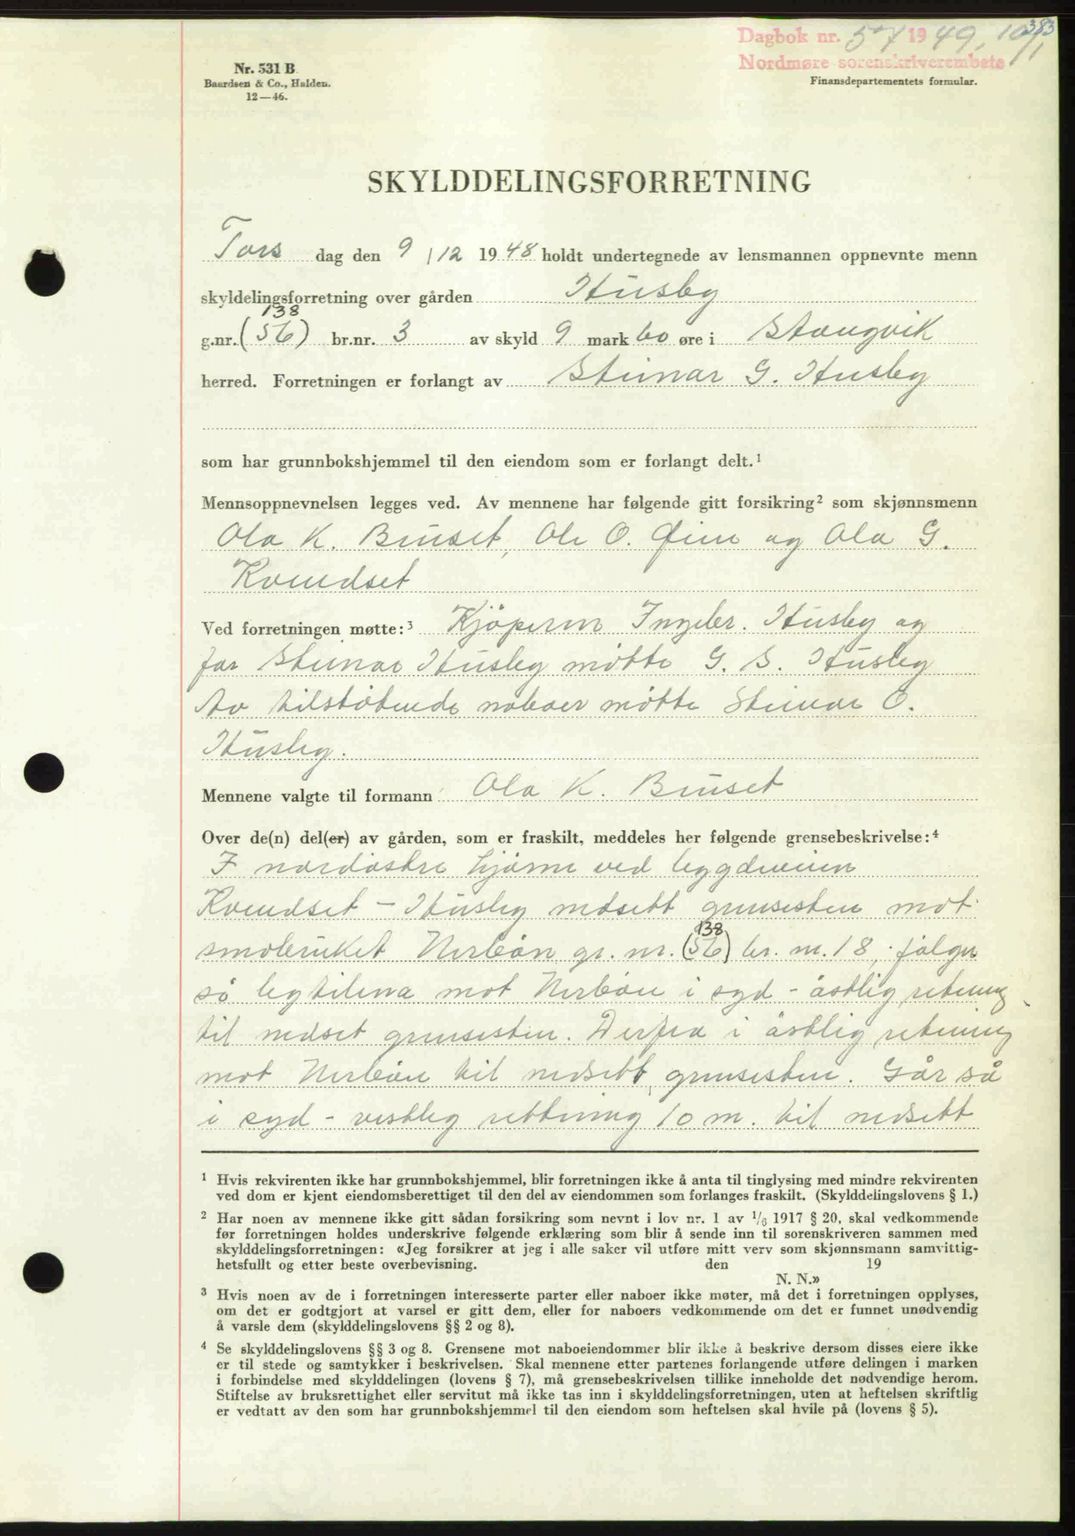 383
Dagbok nr. 57 1949, 10/1
Nordmøre sorenskriverembete
Nr. 531 B
Baardsen & Co., Halden.
12—46.
Finansdepartementets formular.
SKYLDDELINGSFORRETNING
Tors dag den 9/12 1948 holdt undertegnede av lensmannen oppnevnte menn
skyldelingsforretning over gården Husby
138
g.nr. (56) br.nr. 3 av skyld 9 mark 60 øre i Stangvik
herred. Forretningen er forlangt av Steinar G. Husby
som har grunnbokshjemmel til den eiendom som er forlangt delt.¹
Mennsoppnevnelsen legges ved. Av mennene har følgende gitt forsikring² som skjønnsmenn
Ola K. Bruset, Ole O. Øien og Ola G.
Kvendset
Ved forretningen møtte:³ Kjöperen Ingebr. Husby og
for Steinar Husby møtte G. S. Husby
Av tilstøtende naboer møtte Steinar O.
Husby.
Mennene valgte til formann Ola K. Bruset
Over de(n) del(er) av gården, som er fraskilt, meddeles her følgende grensebeskrivelse:⁴
I nordöstre hjörne ved bygdeveien
Kvendset - Husby nedsett grensesten mot
138
småbruket Nerböen gr. nr. (56) br. nr. 18, fölger
så mot Nerböen i syd - östlig retning
til nedset grensesten. Derfra i östlig retning
mot Nerböen til nedsett grensesten. Går så
i syd - vestlig rettning 10 m. til nedsett
¹ Hvis rekvirenten ikke har grunnbokshjemmel, blir forretningen ikke å anta til tinglysing med mindre rekvirenten
ved dom er kjent eiendomsberettiget til den del av eiendommen som forlanges fraskilt. (Skylddelingslovens § 1.)
² Har noen av mennene ikke gitt sådan forsikring som nevnt i lov nr. 1 av 1/6 1917 § 20, skal vedkommende
før forretningen holdes underskrive følgende erklæring som blir å sende inn til sorenskriveren sammen med
skylddelingsforretningen: «Jeg forsikrer at jeg i alle saker vil utføre mitt verv som skjønnsmann samvittig-
hetsfullt og etter beste overbevisning. den 19
N. N.»
³ Hvis noen av de i forretningen interesserte parter eller naboer ikke møter, må det i forretningen opplyses,
om det er godtgjort at varsel er gitt dem, eller for naboers vedkommende om det er funnet unødvendig
å varsle dem (skylddelingslovens §§ 2 og 8).
⁴ Se skylddelingslovens §§ 3 og 8. Grensene mot naboeiendommer blir ikke å beskrive dersom disses eiere ikke
er til stede og samtykker i beskrivelsen. Skal mennene etter partenes forlangende utføre delingen i marken
i forbindelse med skylddelingen (lovens § 7), må grensebeskrivelsen tillike inneholde det nødvendige herom.
Stiftelse av bruksrettighet eller servitut må ikke tas inn i skylddelingsforretningen, uten at heftelsen skriftlig
er vedtatt av den som har grunnbokshjemmel til den eiendom som heftelsen skal hvile på (lovens § 5).